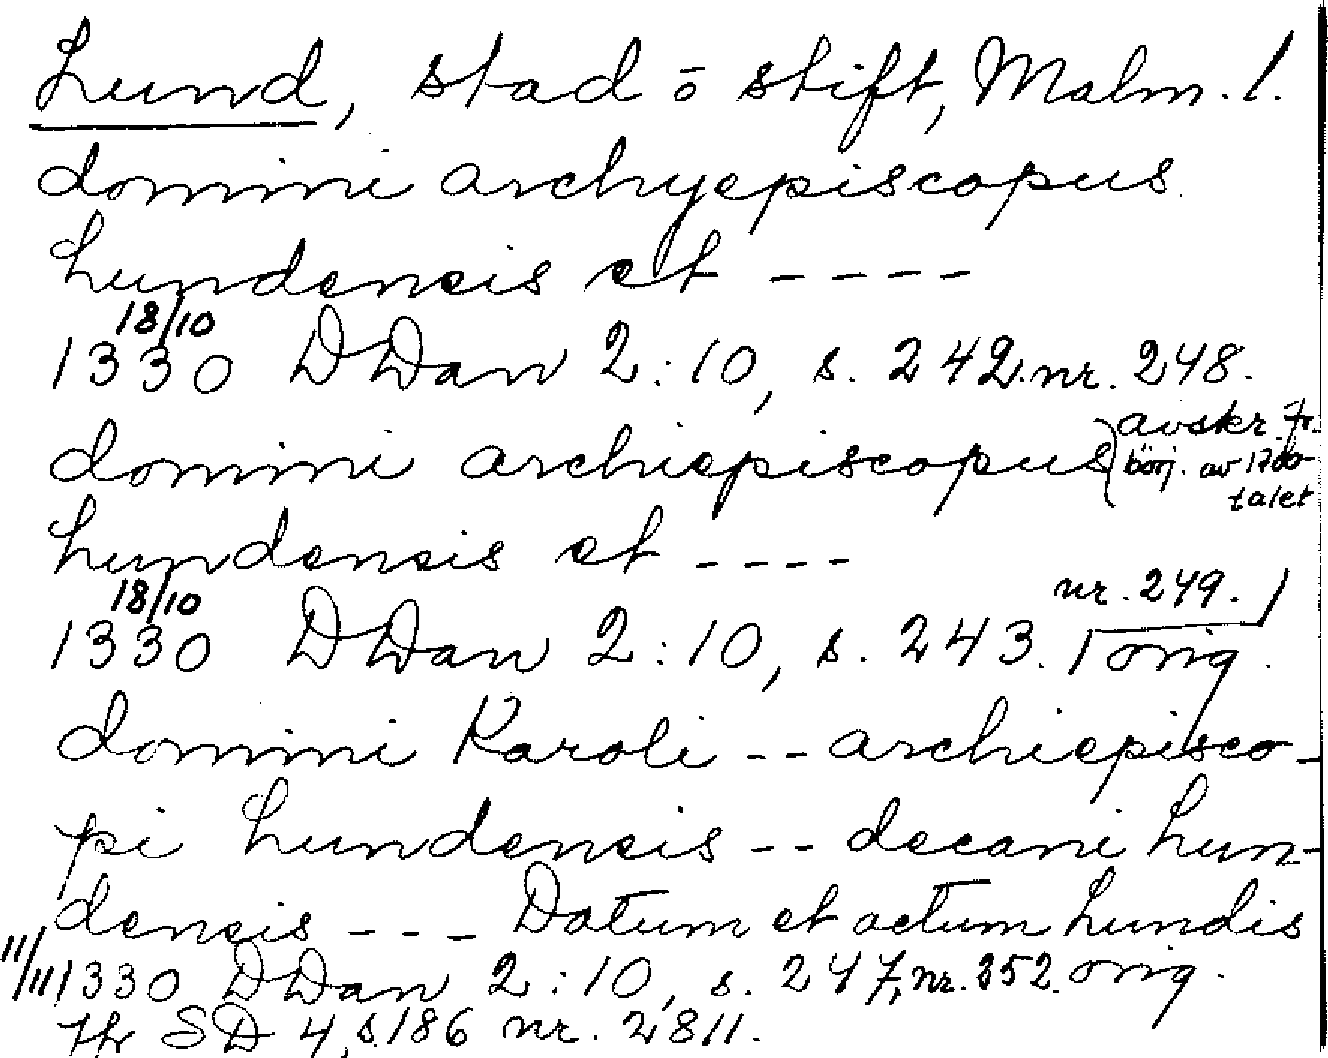 Lund, stad o stift, Malm. l.
domini archyepiscopus
Lundensis et ----
18/10
1330 DDan 2:10, s. 242. nr. 248.
domini archiepiscopus } avskr. fr.
börj. av 1700-
talet
Lundensis et ----
18/10
nr. 249.
1330 DDan 2:10, s. 243. orig.
domini Karoli -- archiepisco-
pi Lundensis -- decani Lun-
densis --- Datum et actum Lundis
11/11 1330 DDan 2:10, s. 247, nr. 252. orig.
Jfr SD 4, s. 186 nr. 2811.